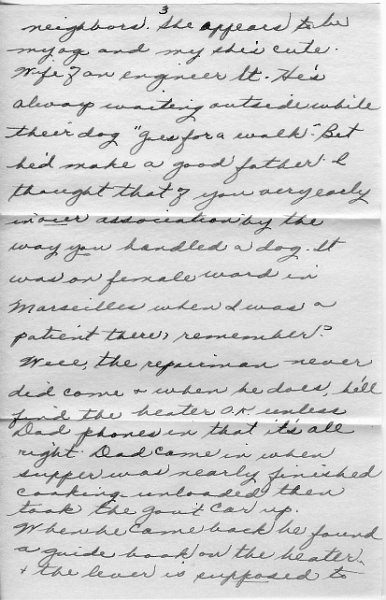 3
neighbors. She appears to be
my age and my she's cute.
Wife of an engineer Lt. He's
always waiting outside while
their dog "goes for a walk". But
he'd make a good father. I
thought that of you very early
in our association by the
way you handled a dog. It
was on female ward in
Marseilles when I was a
patient there, remember?
Well, the repairman never
did come + when he does, he'll
find the heater O.K. unless
Dad phones in that it's all
right. Dad came in when
supper was nearly finished
cooking, unloaded, then
took the gov't car up.
When he came back he found
a guide book on the heater
+ the lever is supposed to